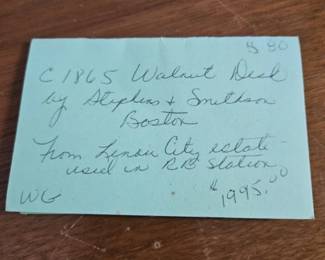 80
C 1865 Walnut Desk
by Stephens & Smithson
Boston
From Lenoir City estate -
used in RR Station
WG
"1995.00